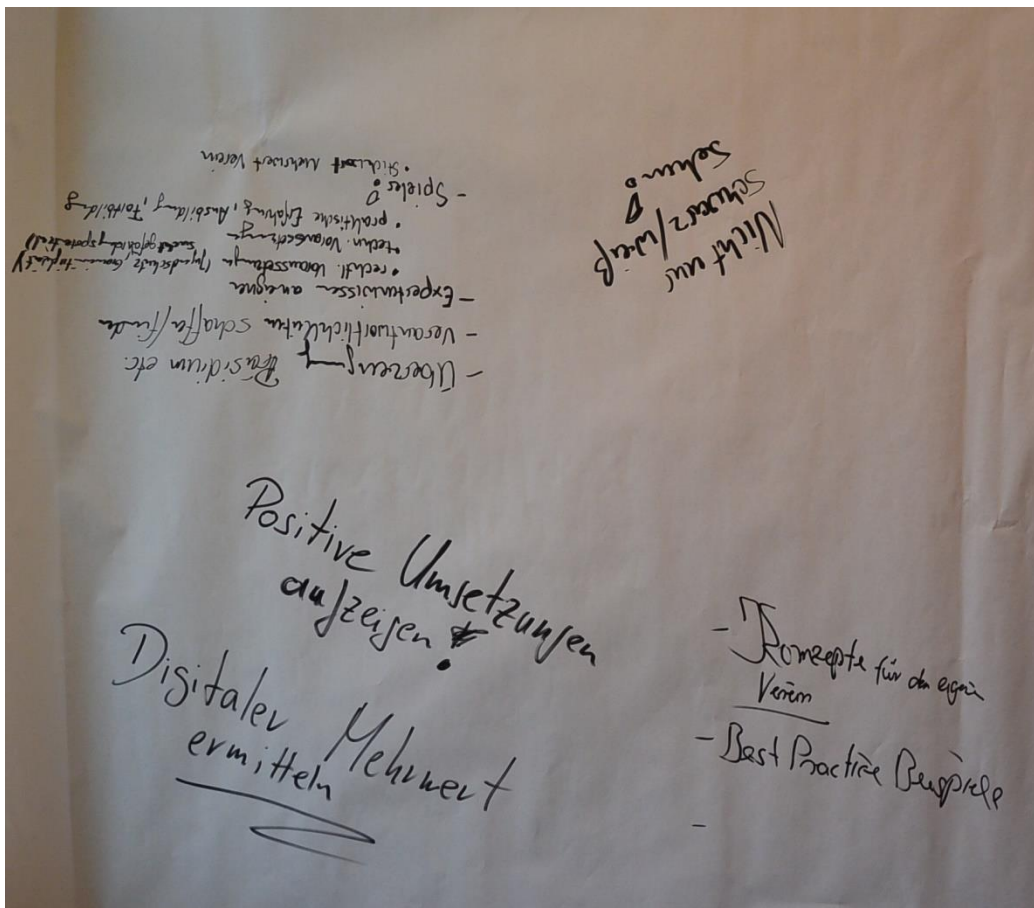 - Überzeugung Präsidium etc.
- Verantwortlichkeiten schaffen/finden
- Expertenwissen aneignen
• rechtl. Voraussetzungen (Jugendschutz,
suchtgefährdungspotential)
• techn. Voraussetzungen
• praktische Erfahrung, Ausbildung, Fortbildung
- Spieler?
• Stichwort Mehrwert Verein
Nicht nur
schwarz/weiß
sehen!
Positive Umsetzungen
aufzeigen!
Digitaler Mehrwert
ermitteln
- Konzepte für den eigenen
Verein
- Best Practice Beispiele
-